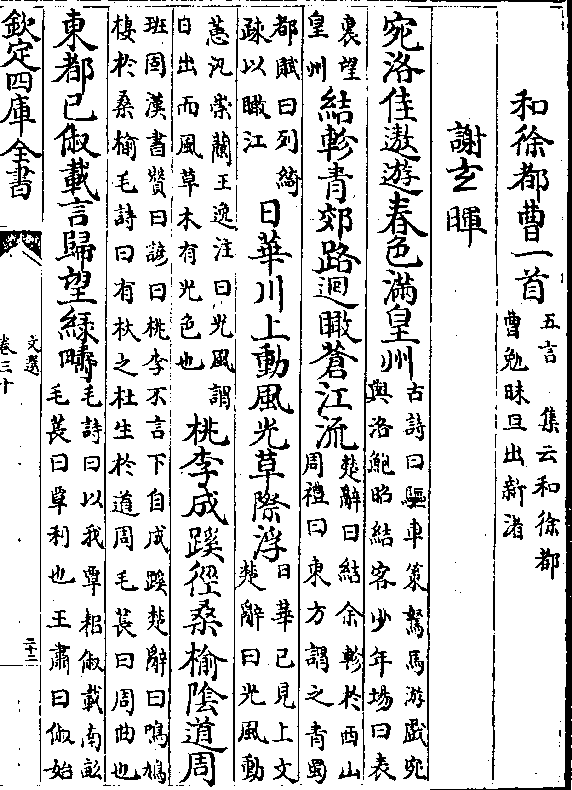 和徐都曹一首 五言 集云和徐都曹勉昧旦出新渚
謝玄暉
宛洛佳遨遊春色滿皇州 古詩曰驅車策駑馬游戲宛與洛鮑昭結客少年場曰表
裏望皇州 結軫青郊路迴瞰蒼江流 楚辭曰結余軫於西山周禮曰東方謂之青蜀
都賦曰列綺疎以瞰江 日華川上動風光草際浮 日華已見上文楚辭曰光風動
蕙汜崇蘭王逸注曰光風謂日出而風草木有光色也 桃李成蹊徑桑榆陰道周
班固漢書贊曰諺曰桃李不言下自成蹊楚辭曰鳴鳩棲於桑榆毛詩曰有杕之杜生於道周毛萇曰周曲也
東都已俶載言歸望綠疇 毛詩曰以我覃耜俶載南畝毛萇曰覃利也王肅曰俶始
欽定四庫全書
文選
卷三十
二十二